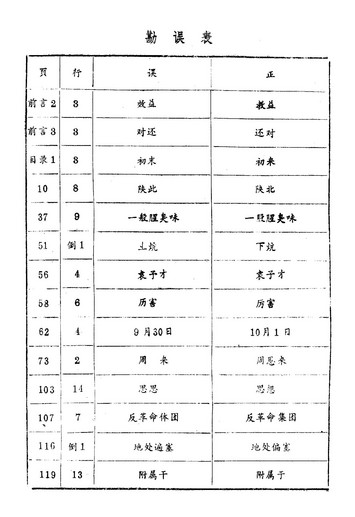 勘误表
页 行 误 正
前言2 3 效益 教益
前言3 3 对还 还对
目录1 3 初末 初来
10 8 陕此 陕北
37 9 一般腥臭味 一股腥臭味
51 倒1 土炕 下炕
56 4 袁子才 袁子才
58 6 历害 厉害
62 4 9月30日 10月1日
73 2 周来 周恩来
103 14 思思 思想
107 7 反革命体团 反革命集团
116 倒1 地处遍塞 地处偏塞
119 13 附属干 附属于